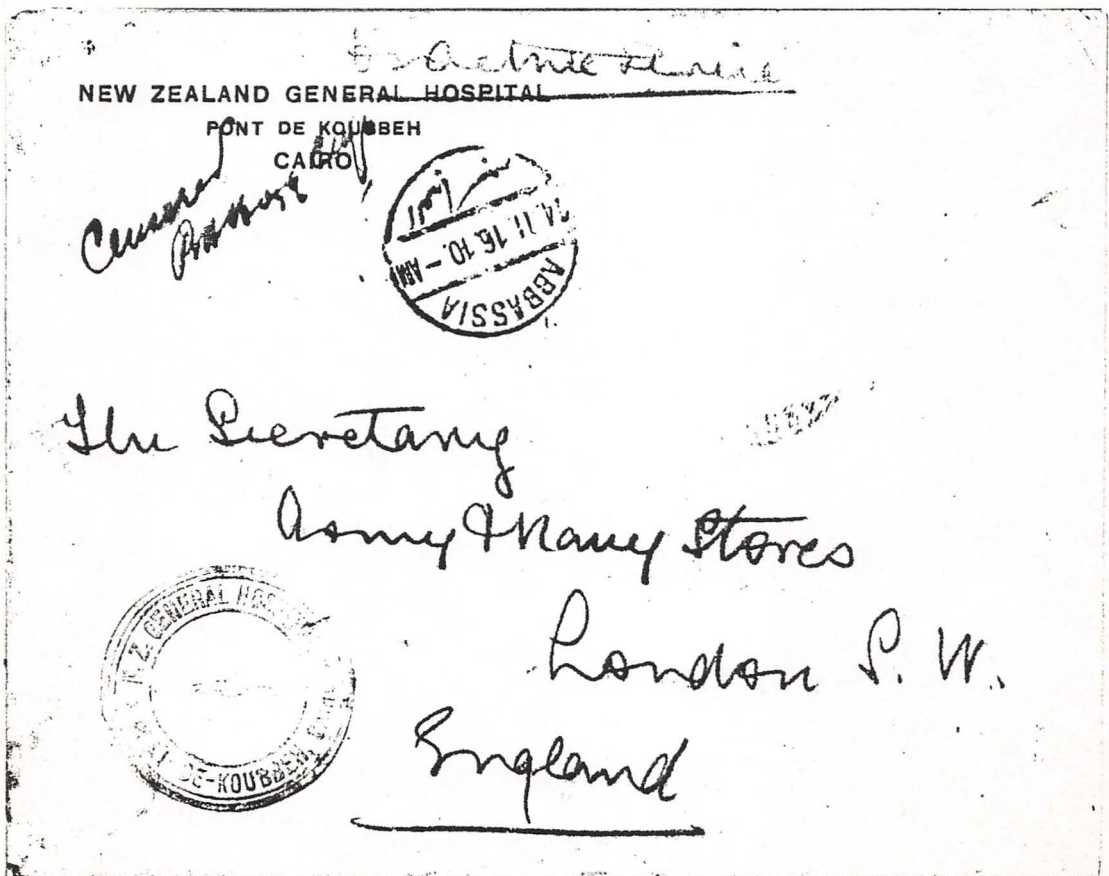 On Active Service
NEW ZEALAND GENERAL HOSPITAL
PONT DE KOUBBEH
CAIRO
Censored
24.II 16.10.-AM
ABBASSIA
The Secretary
Army & Navy Stores
London S.W.
England
N.Z. GENERAL HOSPITAL
DE-KOUBBEH